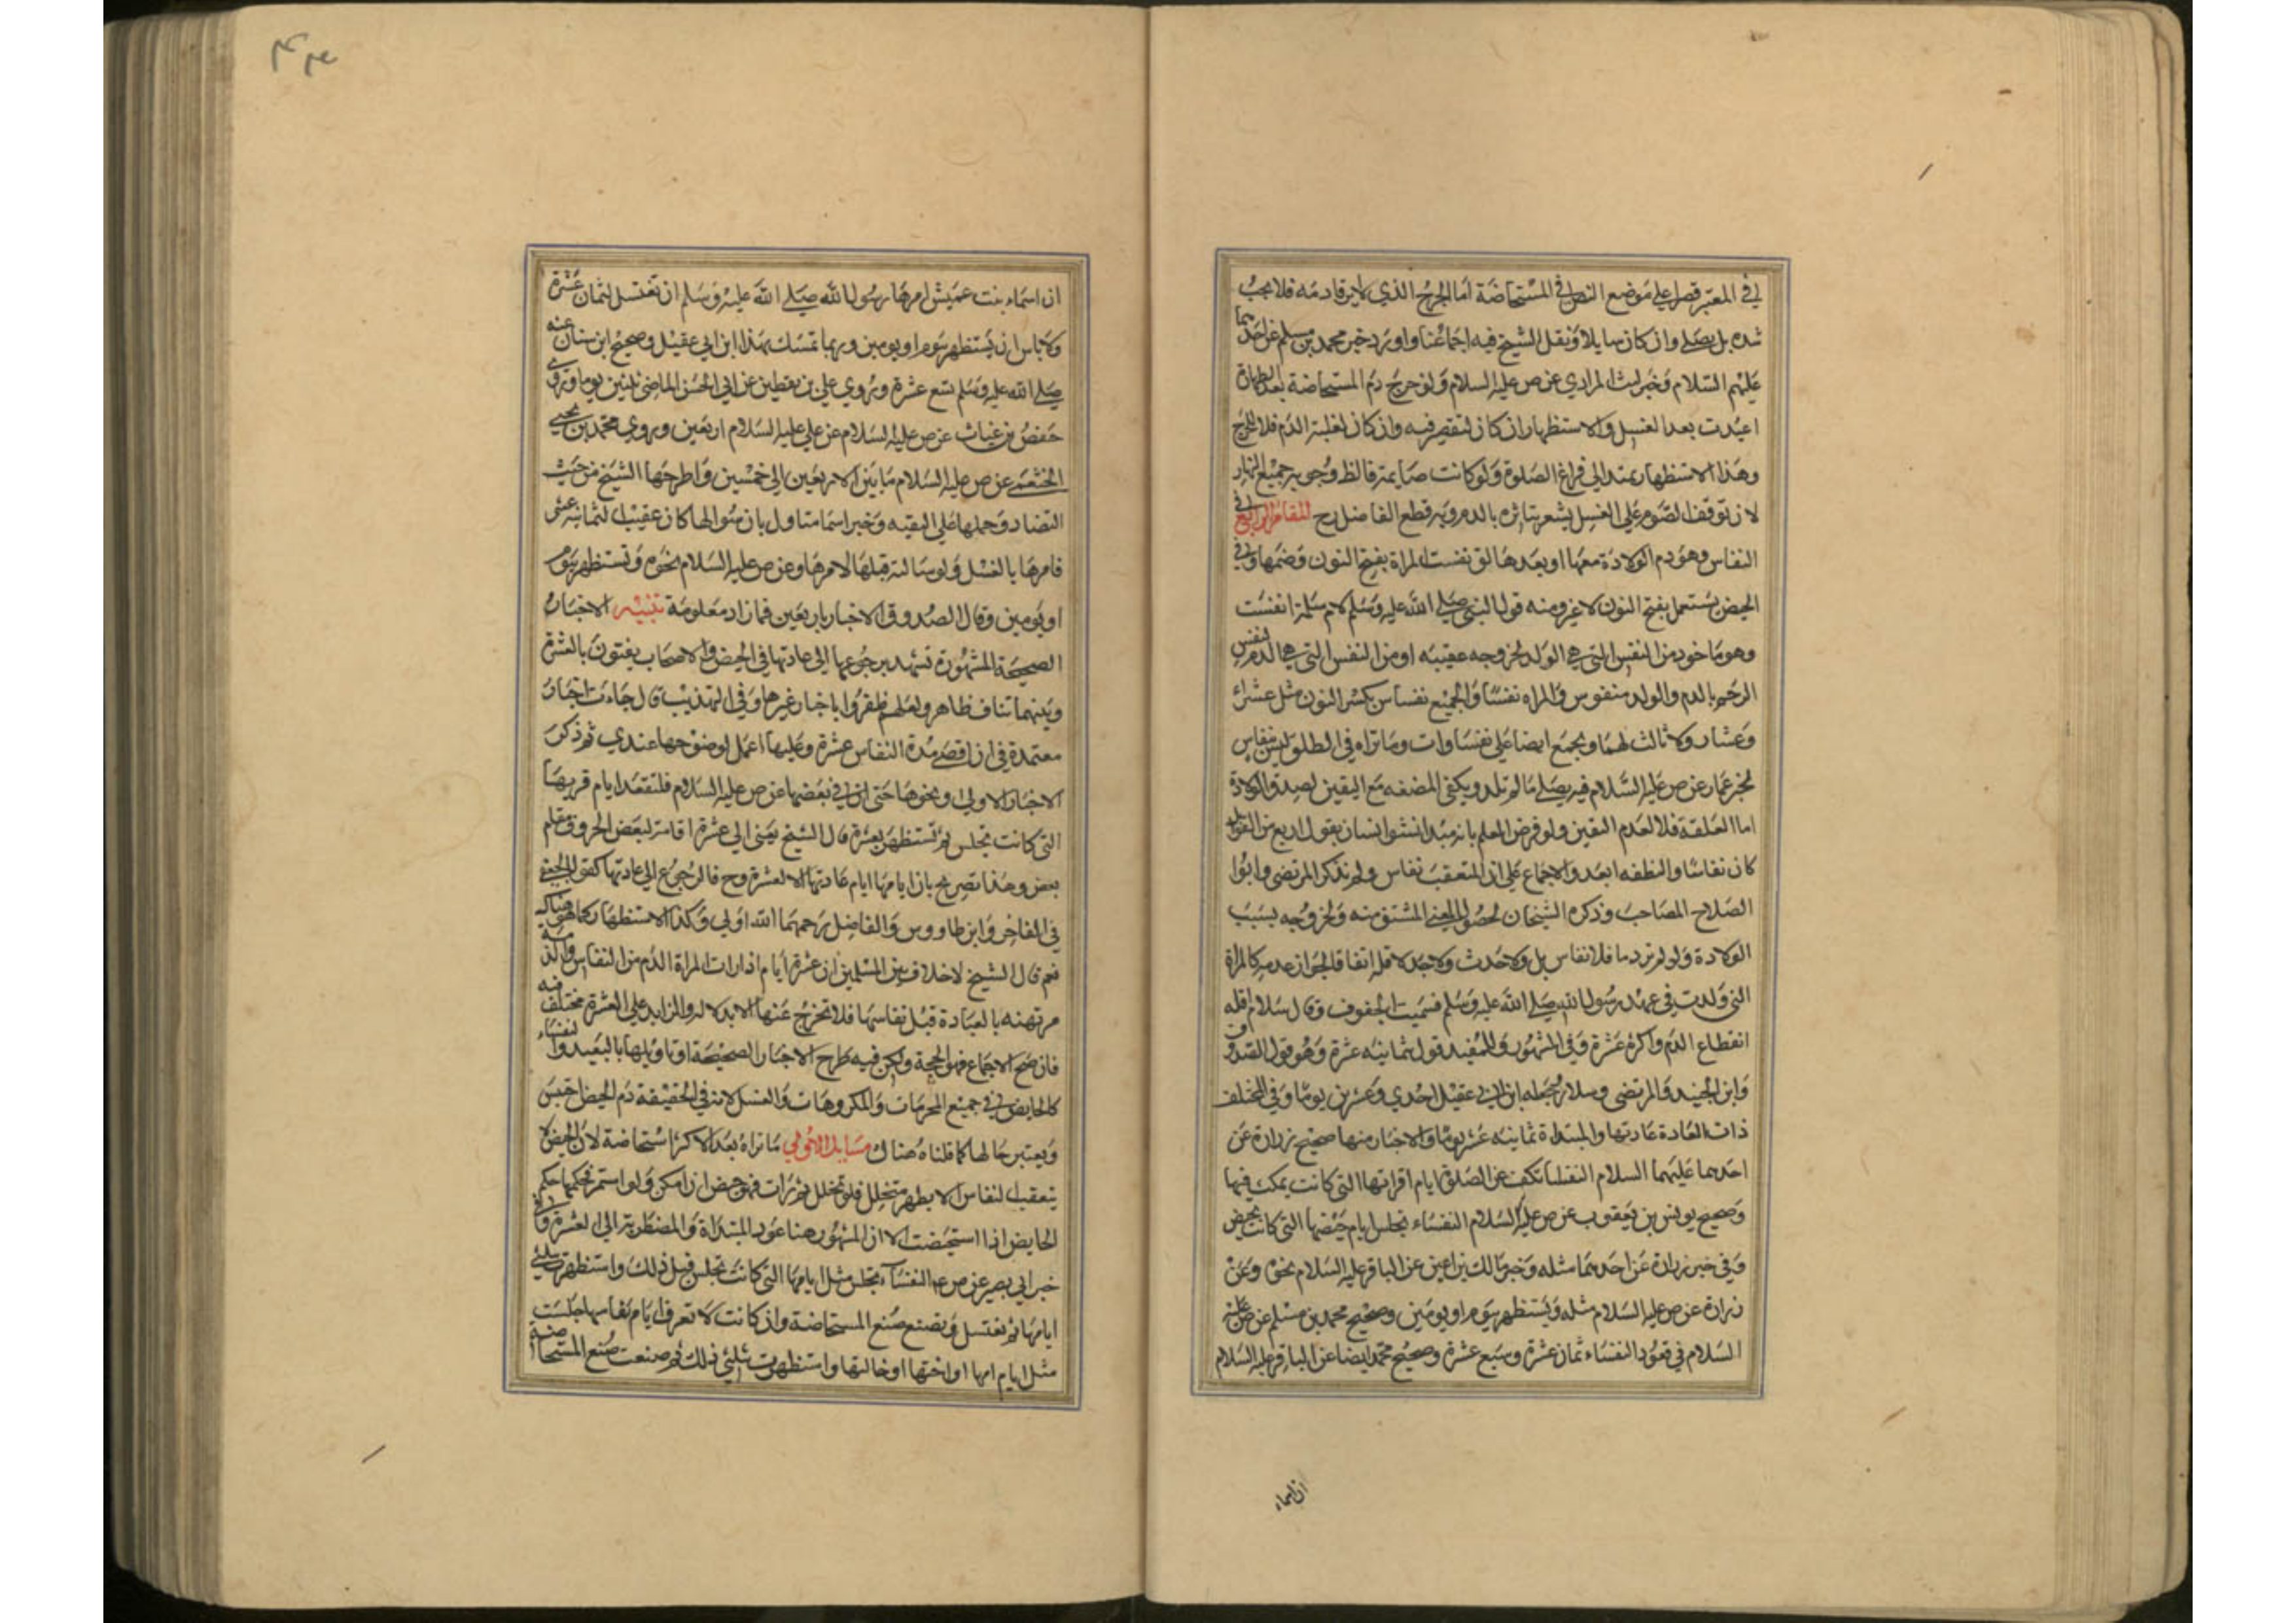 في المعتبر قصرا علي موضع النص في المستحاضة اما الجرح الذي لا يرقا دمه فلا يجب
شده بل يصلي وان كان سايلا ونقل الشيخ فيه اجماعنا واورد خبر محمد بن مسلم عن احدهما
عليهم السلام وخبر ليث المرادي عن ص عليه السلام ولو خرج دم المستحاضة بعد الطهارة
اعيدت بعد الغسل والاستظهار ان كان لتقصير فيه وان كان لغلبة الدم فلا للحرج
وهذا الاستظهار يمتد الي فراغ الصلوة ولو كانت صايمة فالظ وجوبه جميع النهار
لان توقف الصوم علي الغسل يشعر بتاثره بالدم وبه قطع الفاضل رح المقام الرابع في
النفاس وهو دم الولادة معها او بعدها لق نفست المراة بفتح النون وضمها وفي
الحيض يستعمل بفتح النون لا غير ومنه قول النبي صلي الله عليه وسلم لام سلمة انفست
وهو ماخوذ من النفس التي هي الولد لخروجه عقيبه او من النفس التي هي الدم لتنفس
الرحم بالدم والولد منفوس والمراه نفسا والجميع نفاس بكسر النون مثل عشراء
وعشار ولا ثالث لهما ويجمع ايضا علي نفساوات وما تراه في الطلق ليس بنفاس
لخبر عمار عن ص عليه السلام فيه يصلي ما لم تلد ويكفي المضغه مع اليقين لصدق الولادة
اما العلقة فلا لعدم اليقين ولو فرض العلم بانه مبدا نشو انسان بقول اربع من القوابل
كان نفاسا والنطفه ابعد والاجماع علي ان المتعقب نفاس ولم يذكر المرتضي وابوا
الصلاح المصاحب وذكره الشيخان لحصول المعني المشتق منه ولخروجه بسبب
الولادة ولو لم تر دما فلا نفاس بل ولا حدث ولا حد لاقله اتفاقا لجواز عدمه كالمراة
التي ولدت في عهد رسول الله صلي الله عليه وسلم فسميت الجفوف وقال سلار اقله
انقطاع الدم واكثره عشرة وفي المشهور وللمفيد قول بثمانيه عشرة وهو قول الصدوق
وابن الجنيد والمرتضي وسلار وجعله ابن ابي عقيل احدي وعشرين يوما وفي المختلف
ذات العادة عادتها والمبتداة ثمانيه عشر يوما والاخبار منها صحيح زرارة عن
احدهما عليهما السلام النفساء تكف عن الصلوة ايام اقرائها التي كانت يمكث فيها
وصحيح يونس بن يعقوب عن ص عليه السلام النفساء تجلس ايام حيضها التي كانت تحيض
وفي خبر زرارة عن احدهما مثله وخبر مالك بن اعين عن الباقر عليه السلام نحوه وعن
زرارة عن ص عليه السلام مثله وتستظهر بيوم او يومين وصحيح محمد بن مسلم عن ص عليه
السلام في قعود النفساء ثمان عشرة وسبع عشرة وصحيح محمد ايضا عن الباقر عليه السلام
ان اسماء
ان اسماء بنت عميس امرها رسول الله صلي الله عليه وسلم ان تغتسل لثمان عشرة
ولا باس ان يستظهر بيوم او يومين وربما تمسك بهذا ابن ابي عقيل وصحيح ابن سنان عنه
صلي الله عليه وسلم تسع عشرة وروي علي بن يقطين عن ابي الحسن الماضي ثلثين يوما وروي
حفص بن غياث عن ص عليه السلام عن علي عليه السلام اربعين وروي محمد بن يحيي
الخثعمي عن ص عليه السلام ما بين الاربعين الي خمسين واطرحها الشيخ من حيث
التضاد وحملها علي التقيه وخبر اسما متاول بان سوالها كان عقيب الثمانيه عشر
فامرها بالغسل ولو سالته قبلها لامرها وعن ص عليه السلام نحوه وتستظهر بيوم
او يومين وقال الصدوق الاخبار باربعين فما زاد معلومة تنبيه الاخبار
الصحيحة المشهورة تشهد برجوعها الي عادتها في الحيض والاصحاب يفتون بالعشرة
وبينهما تناف ظاهر ولعلهم ظفروا باخبار غيرها وفي التهذيب قال جاءت اخبار
معتمدة في ان اقصي مدة النفاس عشرة وعليها اعمل لوضوحها عندي ثم ذكر
الاخبار الاولي ونحوها حتي ان في بعضها عن ص عليه السلام فلتقعد ايام قريها
التي كانت تجلس ثم تستظهر بعشرة قال الشيخ يعني الي عشرة اقامة لبعض الحروف مقام
بعض وهذا تصريح بان ايامها ايام عادتها لا العشرة وح فالرجوع الي عادتها كقول الجعفي
في الفاخر وابن طاووس والفاضل رحمهما الله اولي وكذا الاستظهار كما هو هناك
نعم قال الشيخ لا خلاف بين المسلمين ان عشرة ايام اذا رات المراة الدم من النفاس والذمة
مرتهنه بالعبادة قبل نفاسها فلا تخرج عنها الا بدلالة والزايد علي العشرة مختلف فيه
فان صح الاجماع فهو الحجة ولكن فيه طرح الاخبار الصحيحة او تاويلها بالبعيد والنفساء
كالحايض في جميع المحرمات والمكروهات والغسل لانه في الحقيقة دم الحيض احتبس
ويعتبر حالها كما قلناه هناك مسايل الاولي ما تراه بعد الاكثر استحاضة لان الحيض لا
يتعقب النفاس الا بطهر متخلل فلو تخلل ثم رات فهو حيض ان امكن ولو استمر فحكمها حكم
الحايض اذا استحيضت الا ان المشهور هنا عود المبتداة والمضطربة الي العشرة وفي
خبر ابي بصير عن ص ع النفساء تجلس مثل ايامها التي كانت تجلس قبل ذلك واستظهرت بثلثي
ايامها ثم تغتسل وتصنع صنع المستحاضة وان كانت لا تعرف ايام نفاسها جلست
مثل ايام امها او اختها او خالتها واستظهرت بثلثي ذلك ثم صنعت صنع المستحاضة